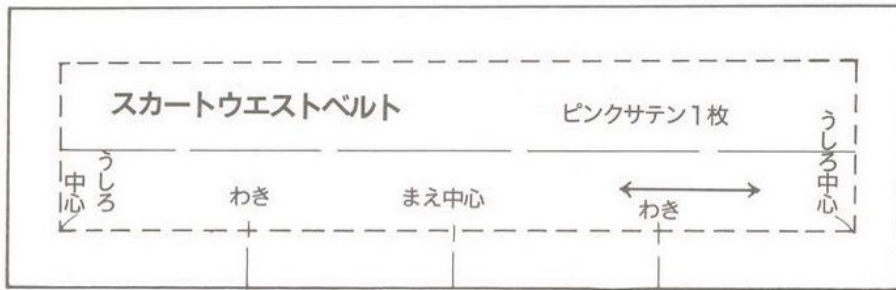 スカートウエストベルト
ピンクサテン1枚
うしろ中心
わき
まえ中心
わき
うしろ中心